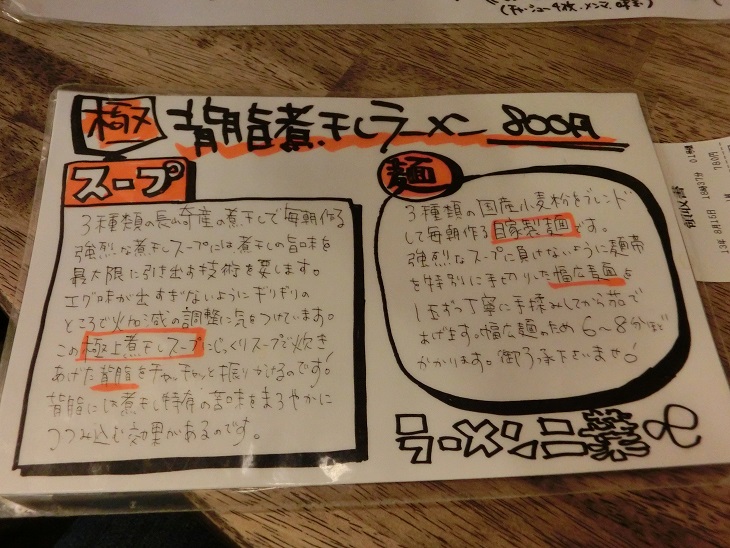 (チャーシュー4枚、メンマ、味玉)
極 背脂煮干しラーメン 800円
スープ
3種類の長崎産の煮干しで毎朝作る
強烈な煮干しスープには煮干しの旨味を
最大限に引き出す技術を要します。
エグ味が出すぎないようにギリギリの
ところで火加減の調整に気をつけています。
この極上煮干しスープにじっくりスープで炊き
あげた背脂をチャッチャッと振りかけるのです!
背脂には煮干し特有の苦味をまろやかに
つつみ込む効果があるのです。
麺
3種類の国産小麦粉をブレンド
して毎朝作る自家製麺です。
強烈なスープに負けないように麺帯
を特別に手切りした幅広麺を
1玉ずつ丁寧に手揉みしてから茹で
あげます。幅広麺のため6〜8分ほど
かかります。御了承下さいませ!
ラーメン二葉
領収書
13年 8月16日 18時37分 01
780円